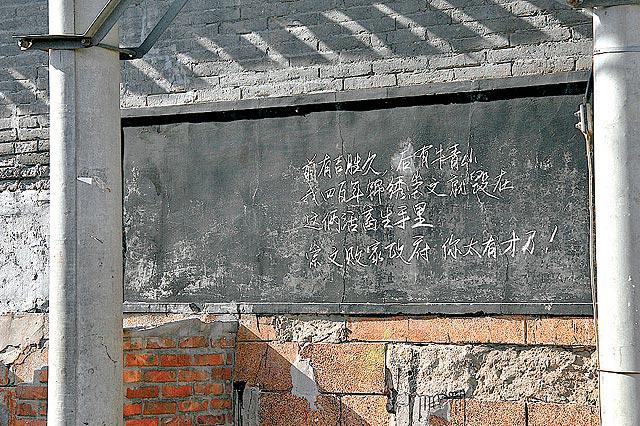 前有吉胜久，后有牛青山
我四百年锦绣崇文就毁在
这俩活畜生手里
崇文败家政府 你太有才了！